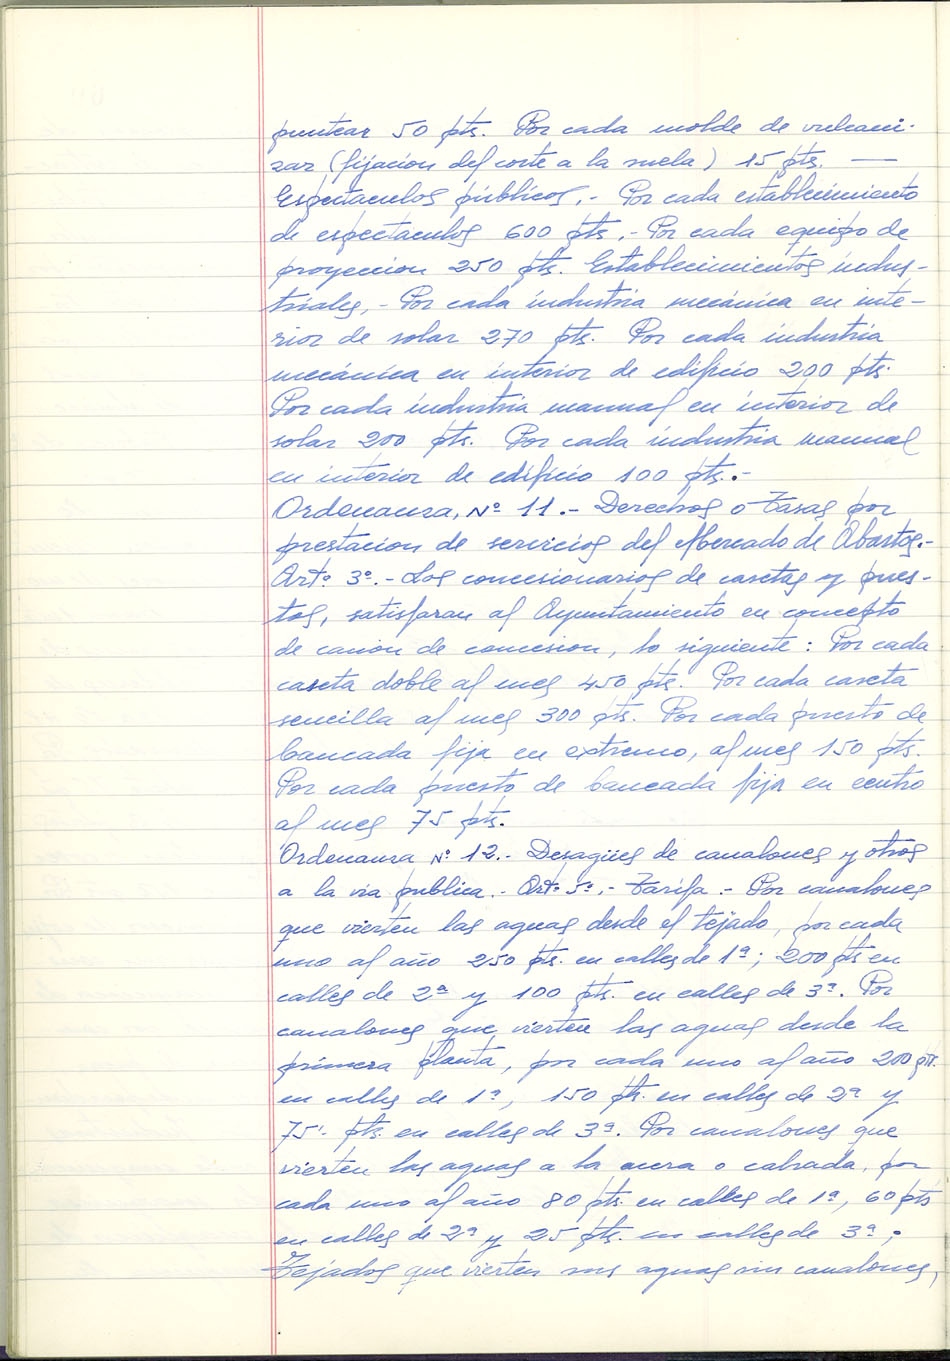 puntear 50 pts. Por cada molde de vulcani-
zar (fijación del corte a la suela) 15 pts. —
Espectaculos públicos.- Por cada establecimiento
de espectaculos 600 pts.- Por cada equipo de
proyeccion 250 pts. Establecimientos indus-
triales,- Por cada industria mecánica en inte-
rior de solar 270 pts. Por cada industria
mecánica en interior de edificio 200 pts.
Por cada industria manual en interior de
solar 200 pts. Por cada industria manual
en interior de edificio 100 pts..-
Ordenanza, Nº 11.- Derechos o Tasas por
prestacion de servicios del Mercado de Abastos.-
Artº 3º.- Los concesionarios de casetas y pues-
tos, satisfaran al Ayuntamiento en concepto
de canon de concesion, lo siguiente: Por cada
caseta doble al mes 450 pts. Por cada caseta
sencilla al mes 300 pts. Por cada puesto de
bancada fija en extremo, al mes 150 pts.
Por cada puesto de bancada fija en centro
al mes 75 pts.
Ordenanza Nº 12.- Desagües de canalones y otros
a la via publica.- Artº 5º.- Tarifa.- Por canalones
que vierten las aguas desde el tejado, por cada
uno al año 250 pts. en calles de 1ª; 200 pts en
calles de 2ª y 100 pts. en calles de 3ª. Por
canalones que vierten las aguas desde la
primera planta, por cada uno al año 200 pts.
en calles de 1ª, 150 pts. en calles de 2ª y
75'- pts. en calles de 3ª. Por canalones que
vierten las aguas a la acera o calzada, por
cada uno al año 80 pts. en calles de 1ª, 60 pts
en calles de 2ª y 25 pts. en calles de 3ª;
Tejados que vierten sus aguas sin canalones,